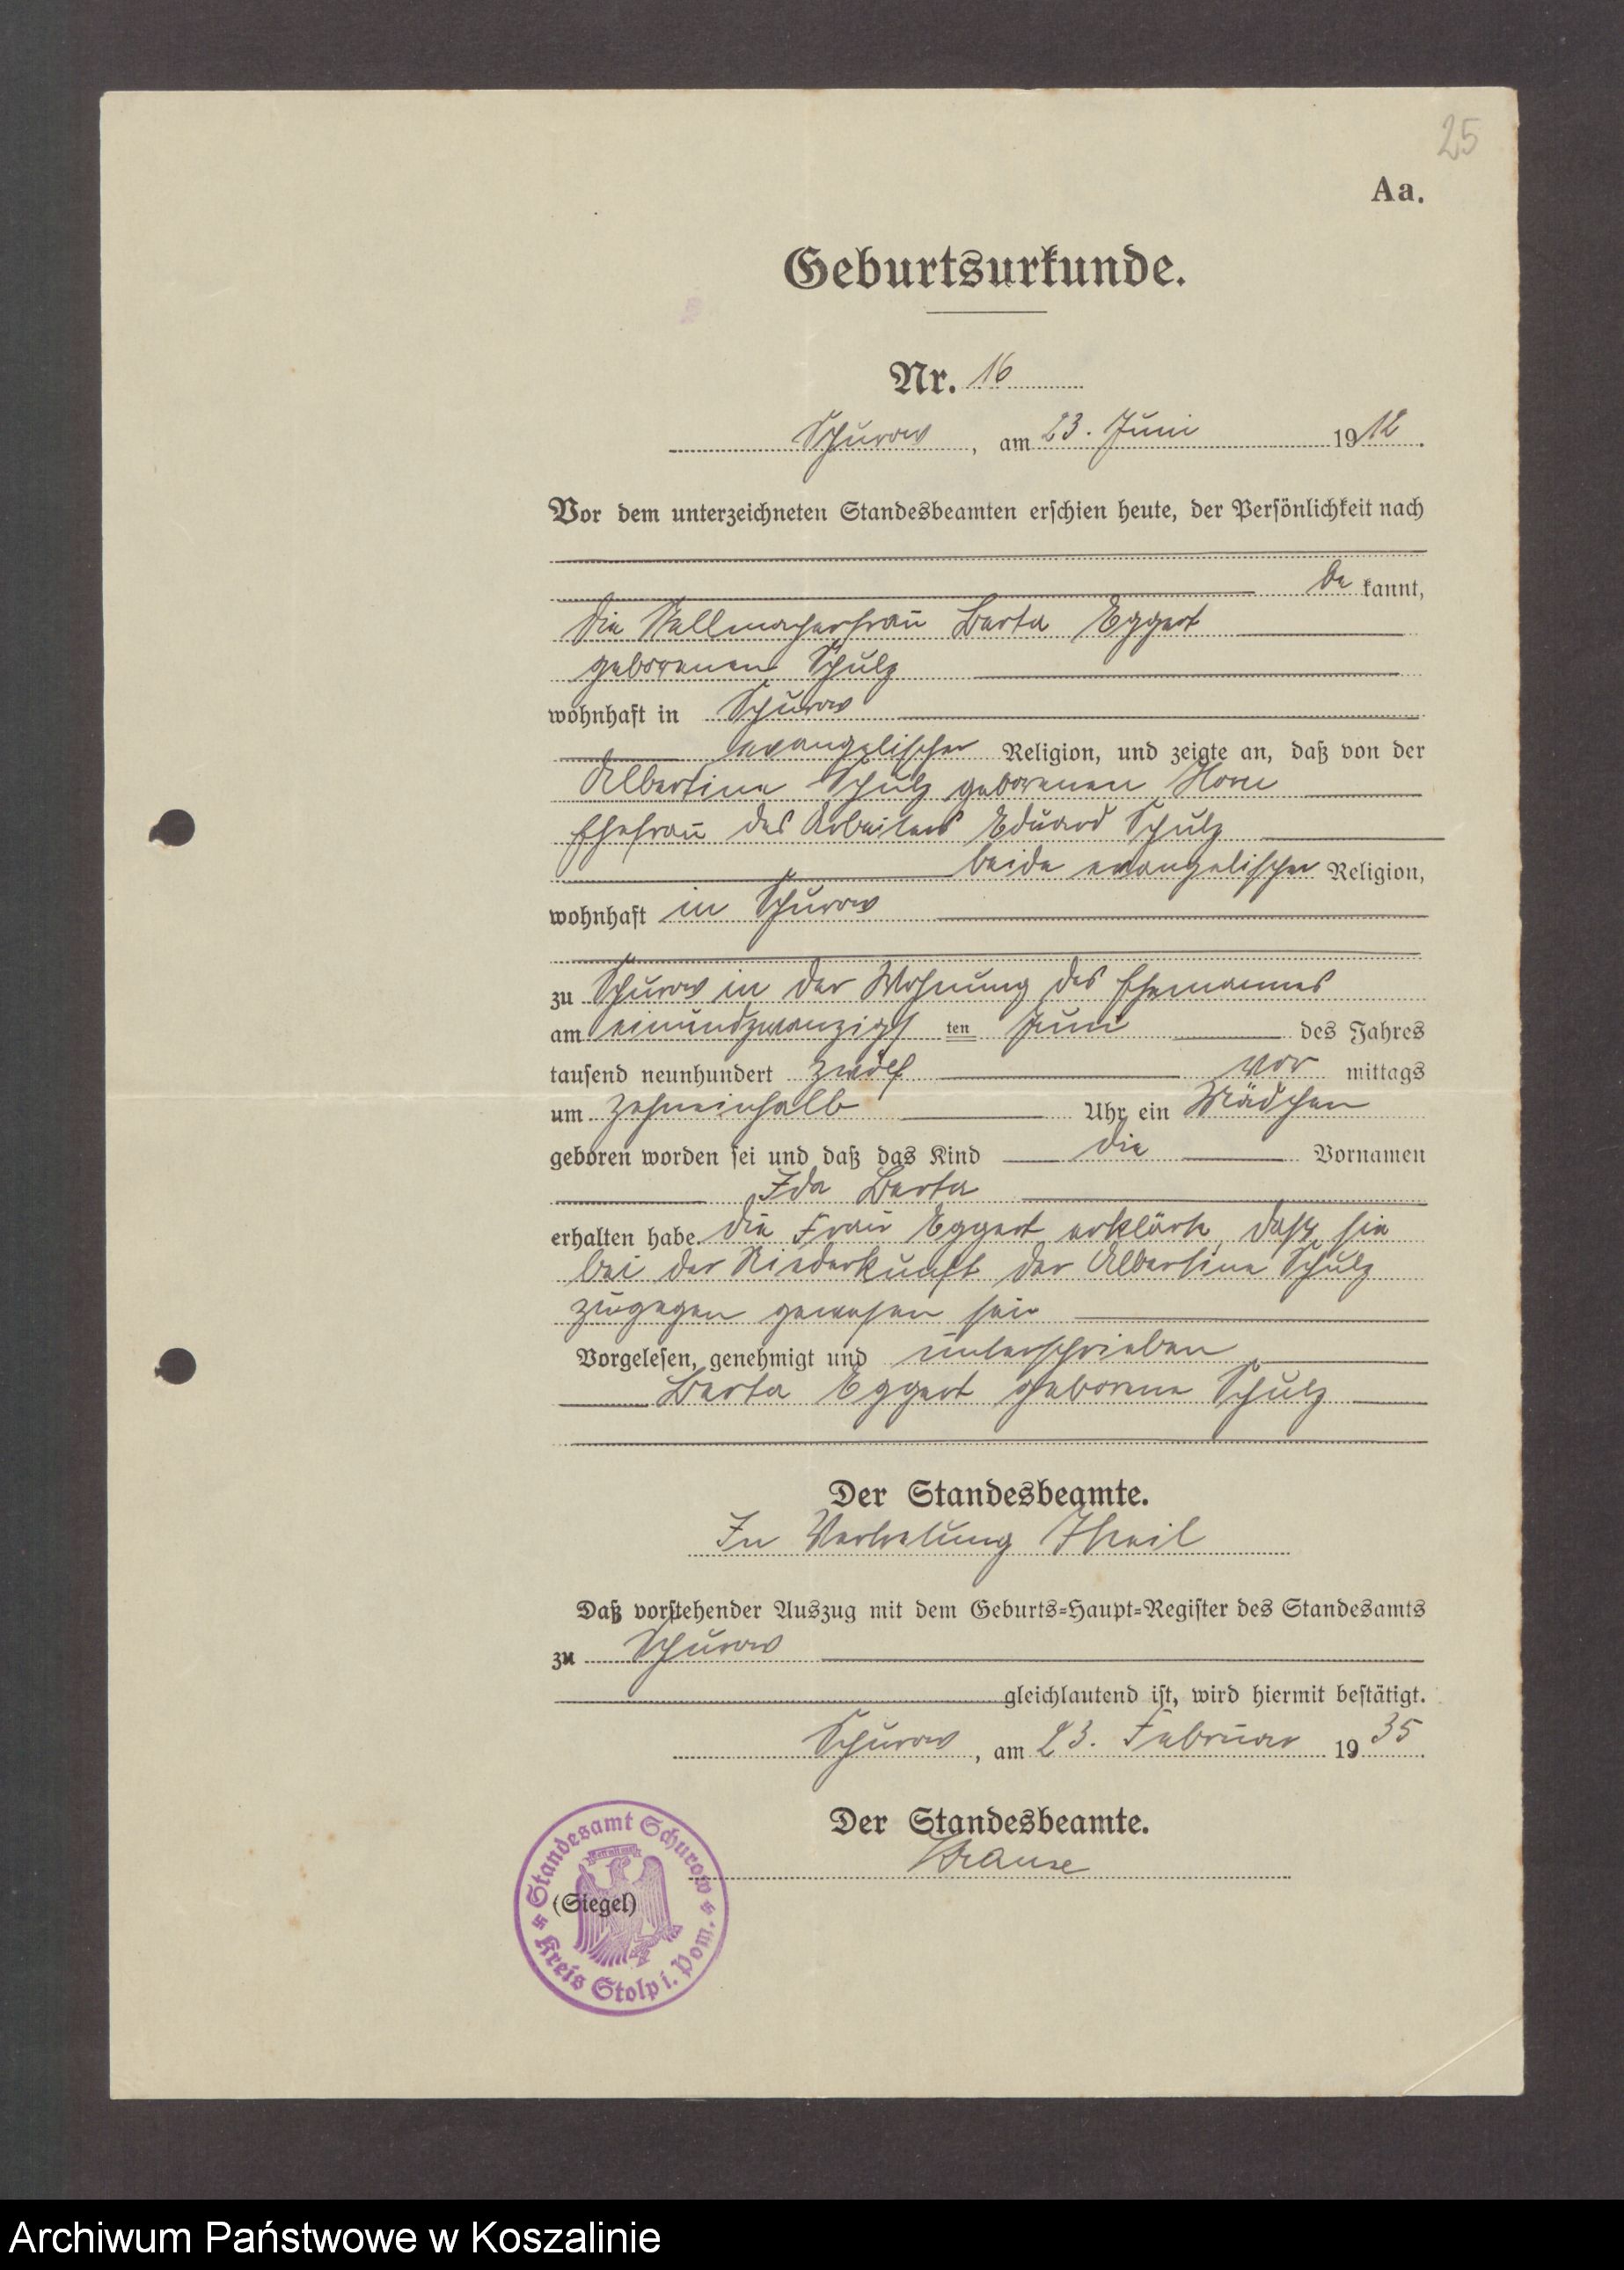 25
Aa.
Geburtsurkunde.
Nr. 16
Schurow, am 23. Juni 1912.
Vor dem unterzeichneten Standesbeamten erschien heute, der Persönlichkeit nach
be kannt,
die Stellmacherfrau Berta Eggert
geborenen Schulz
wohnhaft in Schurow
evangelischer Religion, und zeigte an, daß von der
Albertine Schulz geborenen Horn
Ehefrau des Arbeiters Eduard Schulz
beide evangelischer Religion,
wohnhaft in Schurow
zu Schurow in der Wohnung des Ehemannes
am einundzwanzigs ten Juni des Jahres
tausend neunhundert zwölf vor mittags
um zehneinhalb Uhr ein Mädchen
geboren worden sei und daß das Kind die Vornamen
Ida Berta
erhalten habe. die Frau Eggert erklärte, daß sie
bei der Niederkunft der Albertine Schulz
zugegen gewesen sei
Vorgelesen, genehmigt und unterschrieben
Berta Eggert geborene Schulz
Der Standesbeamte.
In Vertretung Theil
Daß vorstehender Auszug mit dem Geburts-Haupt-Register des Standesamts
zu Schurow
gleichlautend ist, wird hiermit bestätigt.
Schurow, am 23. Februar 1935.
Der Standesbeamte.
Krause
(Siegel)
Standesamt Schurow
Kreis Stolp i. Pom.
Archiwum Państwowe w Koszalinie